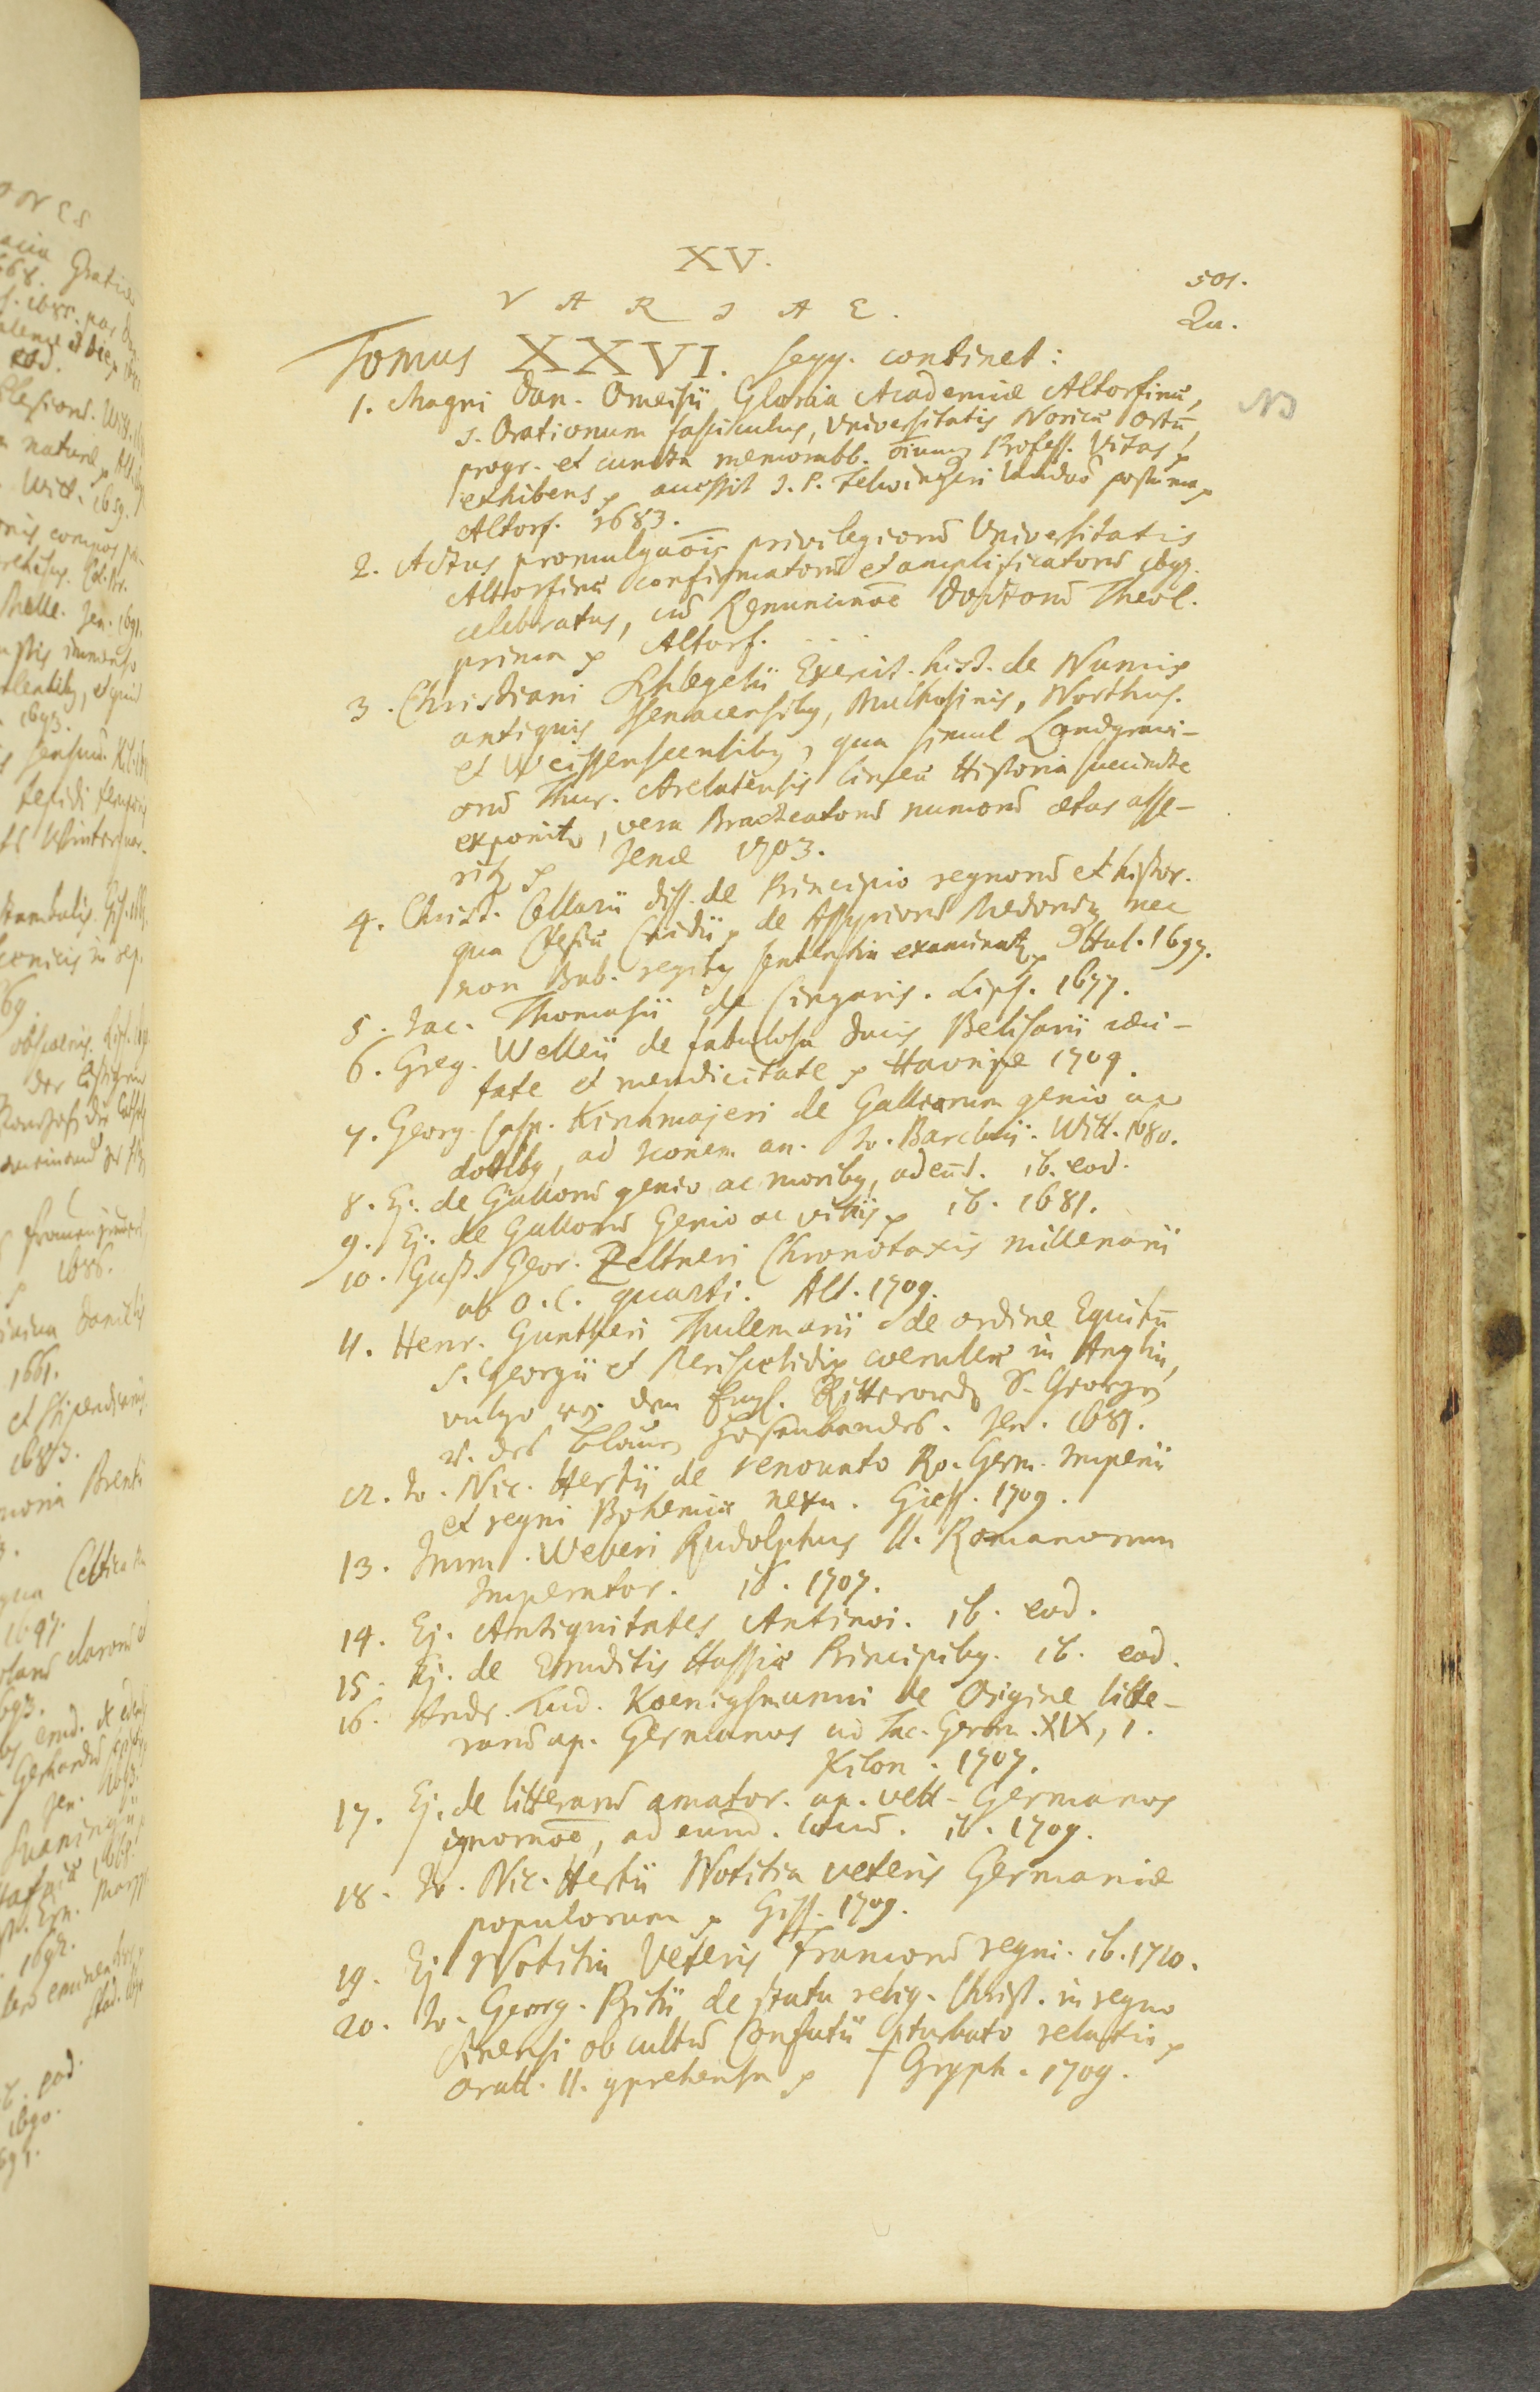 XV.
501.
VARIAE.
Qu.
Tomus XXVI. seqq. continet:
1. Magni Dan. Omeisii Gloria Academiæ Altorfinæ,
NB
s. Orationum fasciculus, Universitatis Noricæ ortū,
progr. et cuncta memorabb. oīum Profess. Vitas
exhibens, accessit J. P. Felwingeri postuma
Altorf. 1683.
2. Actus promulgaōis privilegiorū Universitatis
Altorfinæ confirmatorū et amplificatorū 1697.
celebratus, cū Renunciaōe Doctorū Theol.
prima Altorf. . . .
3. Christiani Schlegelii Exercit. hist. de Numis
antiquis Isenacensibꝰ, Mulhusinis, Northus.
et Weissenseensibꝰ, qua simul Landgravi-
orū Thur. lineæ Historia succincte
exponitr, vera Bracteatorū numorū ætas asse-
ritr Jenæ 1703.
4. Christ. Cellarii diss. de Principio regnorū et histor.
qua Ctesiæ Cnidii, de Assyriorū Medorūqꝫ nec
non Bab. regibꝰ sententia examinatr Hal. 1697.
5. Jac. Thomasii de Cingaris. Lips. 1677.
6. Greg. Welleii de fabulosa Ducis Belisarii cæci-
tate et mendicitate Havniæ 1709.
7. Georg. Casp. Kirchmajeri de Gallorum genio ac
dotibꝰ, ad Iconem an. Jo. Barclaii. Witt. 1680.
8. Ej. de Gallorū genio ac moribꝰ, ad eūd. ib. eod.
9. Ej. de Gallorū Genio ac vitiis ib. 1681.
10. Gust. Geor. Zeltneri Chronotaxis millenarii
ab O. C. quarti. Alt. 1709.
11. Henr. Guntheri Thulemarii de ordine Equitū
S. Georgii et Periscelidis coeruleæ in Anglia,
vulgo von dem Engl. Ritterorden S. Georgen
v. des blauen Hosenbandes. Jen. 1681.
12. Jo. Nic. Hertii de renovato Ro. Germ. Imperii
et regni Bohemiæ nexu. Giess. 1709.
13. Imm. Weberi Rudolphus II. Romanorum
Imperator. ib. 1707.
14. Ej. Antiquitates Antinoi. ib. eod.
15. Ej. de Eruditis Hassiæ Principibꝰ. ib. eod.
16. Andr. Lud. Koenigsmanni de Origine litte-
rarū ap. Germanos ad Tac. Germ. XIX, 1.
Kilon. 1707.
17. Ej. de litterarū amator. ap. vett. Germanos
ignoraōe, ad eund. locū. ib. 1709.
18. Jo. Nic. Hertii Notitia veteris Germaniæ
populorum Giss. 1709.
19. Ej. Notitia Veteris Francorū regni. ib. 1710.
20. Jo. Georg. Pritii de statu relig. Christ. in regno
Sinensi ob cultū Confutii pturbato relatio
oratt. II. 9prehensa Gryph. 1709.